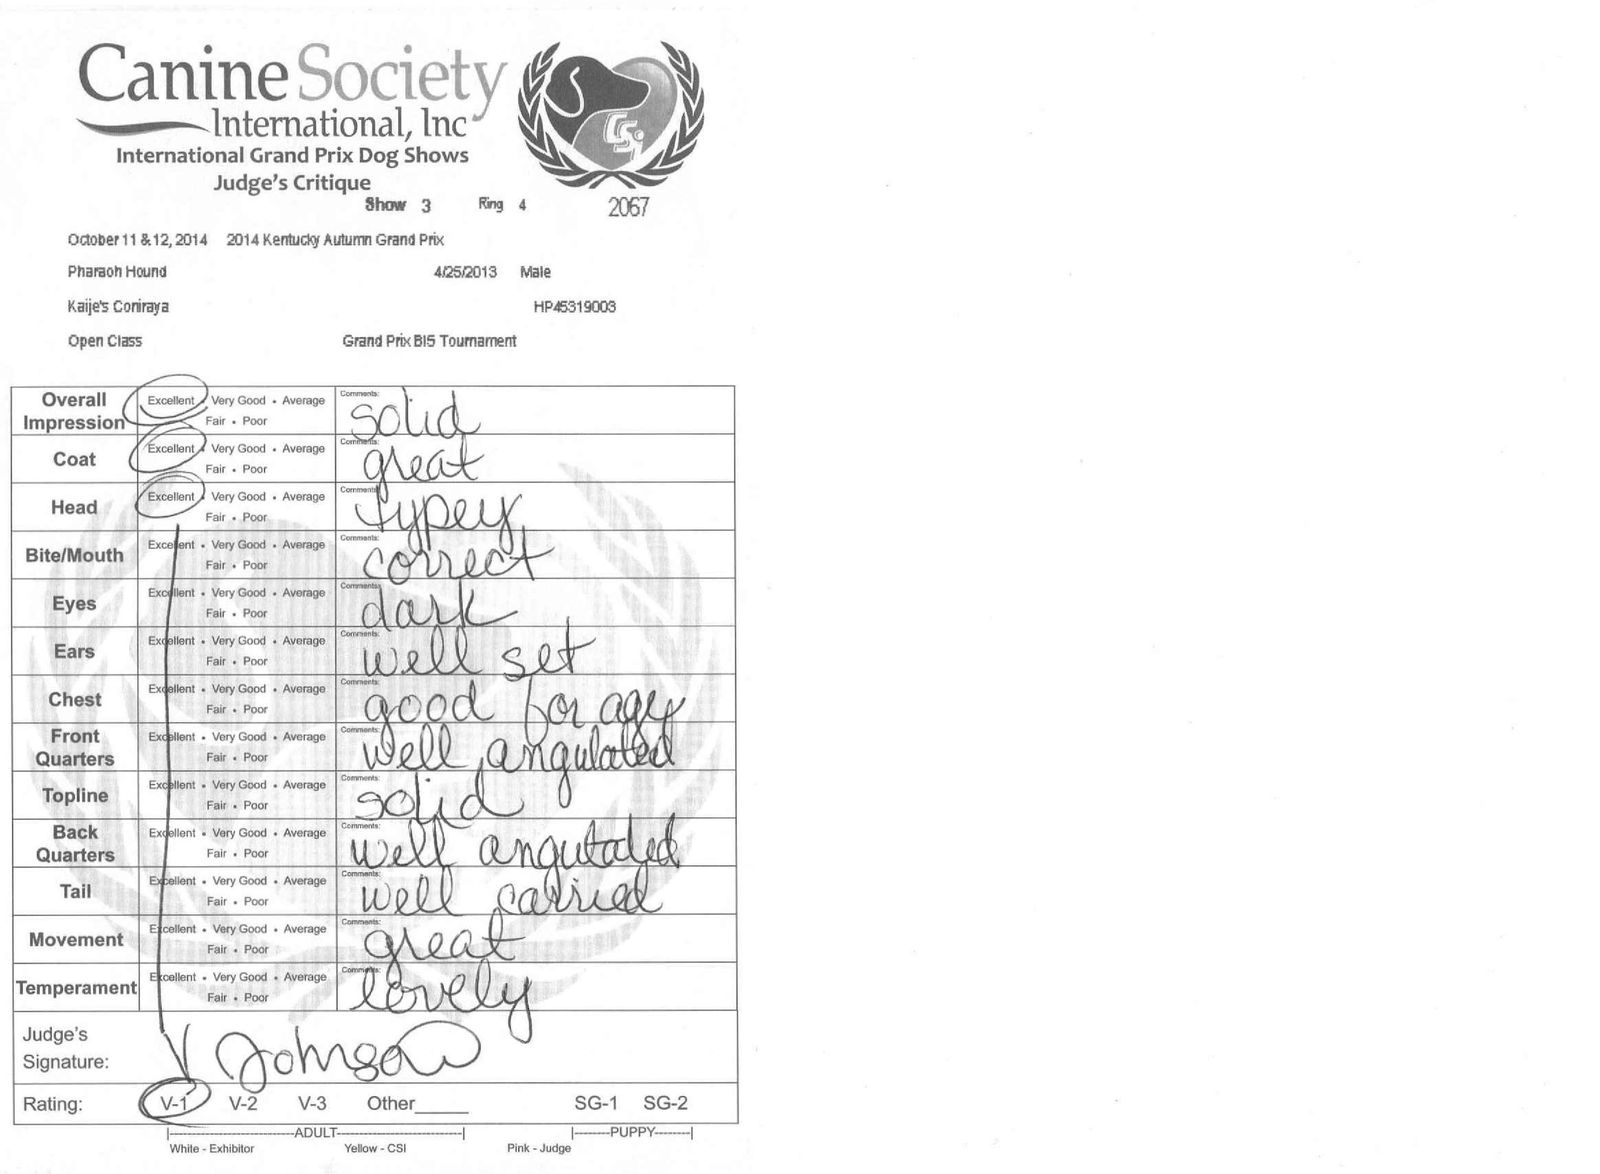 Canine Society
International, Inc
International Grand Prix Dog Shows
Judge's Critique
CSi
Show 3 Ring 4 2067
October 11 & 12, 2014 2014 Kentucky Autumn Grand Prix
Pharaoh Hound 4/25/2013 Male
Kaije's Coniraya HP45319003
Open Class Grand Prix BIS Tournament
Overall Impression Excellent • Very Good • Average Fair • Poor Comments: solid
Coat Excellent • Very Good • Average Fair • Poor Comments: great
Head Excellent • Very Good • Average Fair • Poor Comments: typey
Bite/Mouth Excellent • Very Good • Average Fair • Poor Comments: correct
Eyes Excellent • Very Good • Average Fair • Poor Comments: dark
Ears Excellent • Very Good • Average Fair • Poor Comments: well set
Chest Excellent • Very Good • Average Fair • Poor Comments: good for age
Front Quarters Excellent • Very Good • Average Fair • Poor Comments: well angulated
Topline Excellent • Very Good • Average Fair • Poor Comments: solid
Back Quarters Excellent • Very Good • Average Fair • Poor Comments: well angulated
Tail Excellent • Very Good • Average Fair • Poor Comments: well carried
Movement Excellent • Very Good • Average Fair • Poor Comments: great
Temperament Excellent • Very Good • Average Fair • Poor Comments: lovely
Judge's Signature: Johnson
Rating: V-1 V-2 V-3 Other_____ SG-1 SG-2
|----------ADULT----------| |--------PUPPY-------|
White - Exhibitor Yellow - CSI Pink - Judge